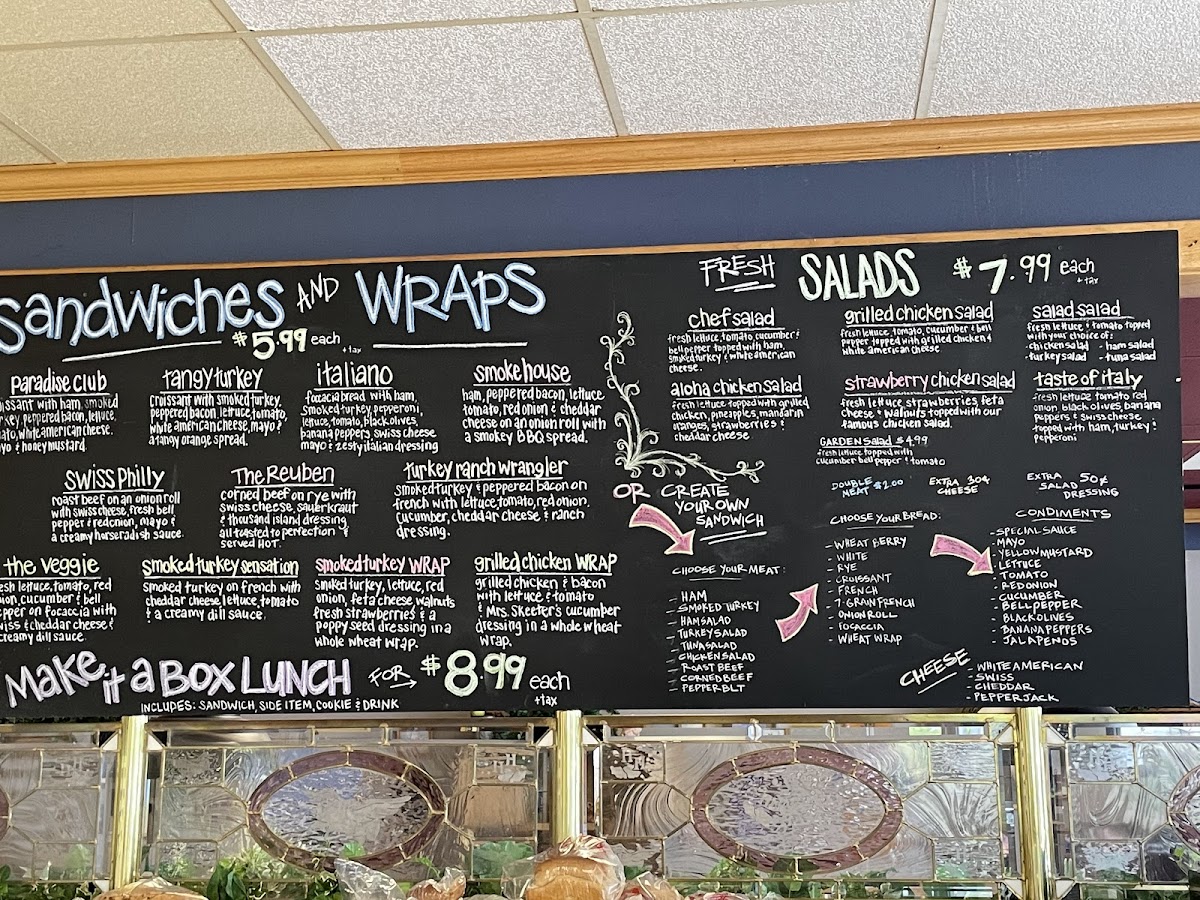 Sandwiches AND WRAPS
$5.99 each
+tax
paradise club
croissant with ham, smoked
turkey, peppered bacon, lettuce,
tomato, white american cheese,
mayo & honey mustard.
tangy turkey
croissant with smoked turkey,
peppered bacon, lettuce, tomato,
white american cheese, mayo &
a tangy orange spread.
italiano
foccacia bread with ham,
smoked turkey, pepperoni,
lettuce, tomato, black olives,
banana peppers, swiss cheese,
mayo & zesty italian dressing
smokehouse
ham, peppered bacon, lettuce,
tomato, red onion & cheddar
cheese on an onion roll with
a smokey BBQ spread.
SWISS Philly
roast beef on an onion roll
with swiss cheese, fresh bell
pepper & red onion, mayo &
a creamy horseradish sauce.
The Reuben
corned beef on rye with
swiss cheese, sauerkraut
& thousand island dressing,
all toasted to perfection &
served HOT.
turkey ranch wrangler
smoked turkey & peppered bacon on
french with lettuce, tomato, red onion,
cucumber, cheddar cheese & ranch
dressing.
the veggie
fresh lettuce, tomato, red
onion, cucumber & bell
pepper on focaccia with
swiss & cheddar cheese &
creamy dill sauce.
smoked turkey sensation
smoked turkey on french with
cheddar cheese, lettuce, tomato
& a creamy dill sauce.
smoked turkey WRAP
smoked turkey, lettuce, red
onion, feta cheese, walnuts
fresh strawberries & a
poppy seed dressing in a
whole wheat wrap.
grilled chicken WRAP
grilled chicken & bacon
with lettuce & tomato
& Mrs. Skeeter's cucumber
dressing in a whole wheat
wrap.
Make it a BOX LUNCH FOR $8.99 each
+tax
INCLUDES: SANDWICH, SIDE ITEM, COOKIE & DRINK
FRESH SALADS $7.99 each
+tax
chef salad
fresh lettuce, tomato, cucumber &
bell pepper topped with ham,
smoked turkey & white american
cheese.
grilled chicken salad
fresh lettuce, tomato, cucumber & bell
pepper topped with grilled chicken &
white american cheese
salad salad
fresh lettuce & tomato topped
with your choice of:
- chicken salad - ham salad
- turkey salad - tuna salad
aloha chicken salad
fresh lettuce topped with grilled
chicken, pineapples, mandarin
oranges, strawberries &
cheddar cheese
strawberry chicken salad
fresh lettuce, strawberries, feta
cheese & walnuts topped with our
famous chicken salad.
taste of italy
fresh lettuce, tomato, red
onion, black olives, banana
peppers & swiss cheese
topped with ham, turkey &
pepperoni
GARDEN Salad $4.99
fresh lettuce topped with
cucumber, bell pepper & tomato
DOUBLE
MEAT $2.00
EXTRA 30¢
CHEESE
EXTRA 50¢
SALAD
DRESSING
OR CREATE
YOUR OWN
SANDWICH
CHOOSE YOUR MEAT:
- HAM
- SMOKED TURKEY
- HAM SALAD
- TURKEY SALAD
- TUNA SALAD
- CHICKEN SALAD
- ROAST BEEF
- CORNED BEEF
- PEPPER BLT
CHOOSE YOUR BREAD:
- WHEAT BERRY
- WHITE
- RYE
- CROISSANT
- FRENCH
- 7-GRAIN FRENCH
- ONION ROLL
- FOCACCIA
- WHEAT WRAP
CONDIMENTS
- SPECIAL SAUCE
- MAYO
- YELLOW MUSTARD
- LETTUCE
- TOMATO
- RED ONION
- CUCUMBER
- BELL PEPPER
- BLACK OLIVES
- BANANA PEPPERS
- JALAPENOS
CHEESE
- WHITE AMERICAN
- SWISS
- CHEDDAR
- PEPPER JACK